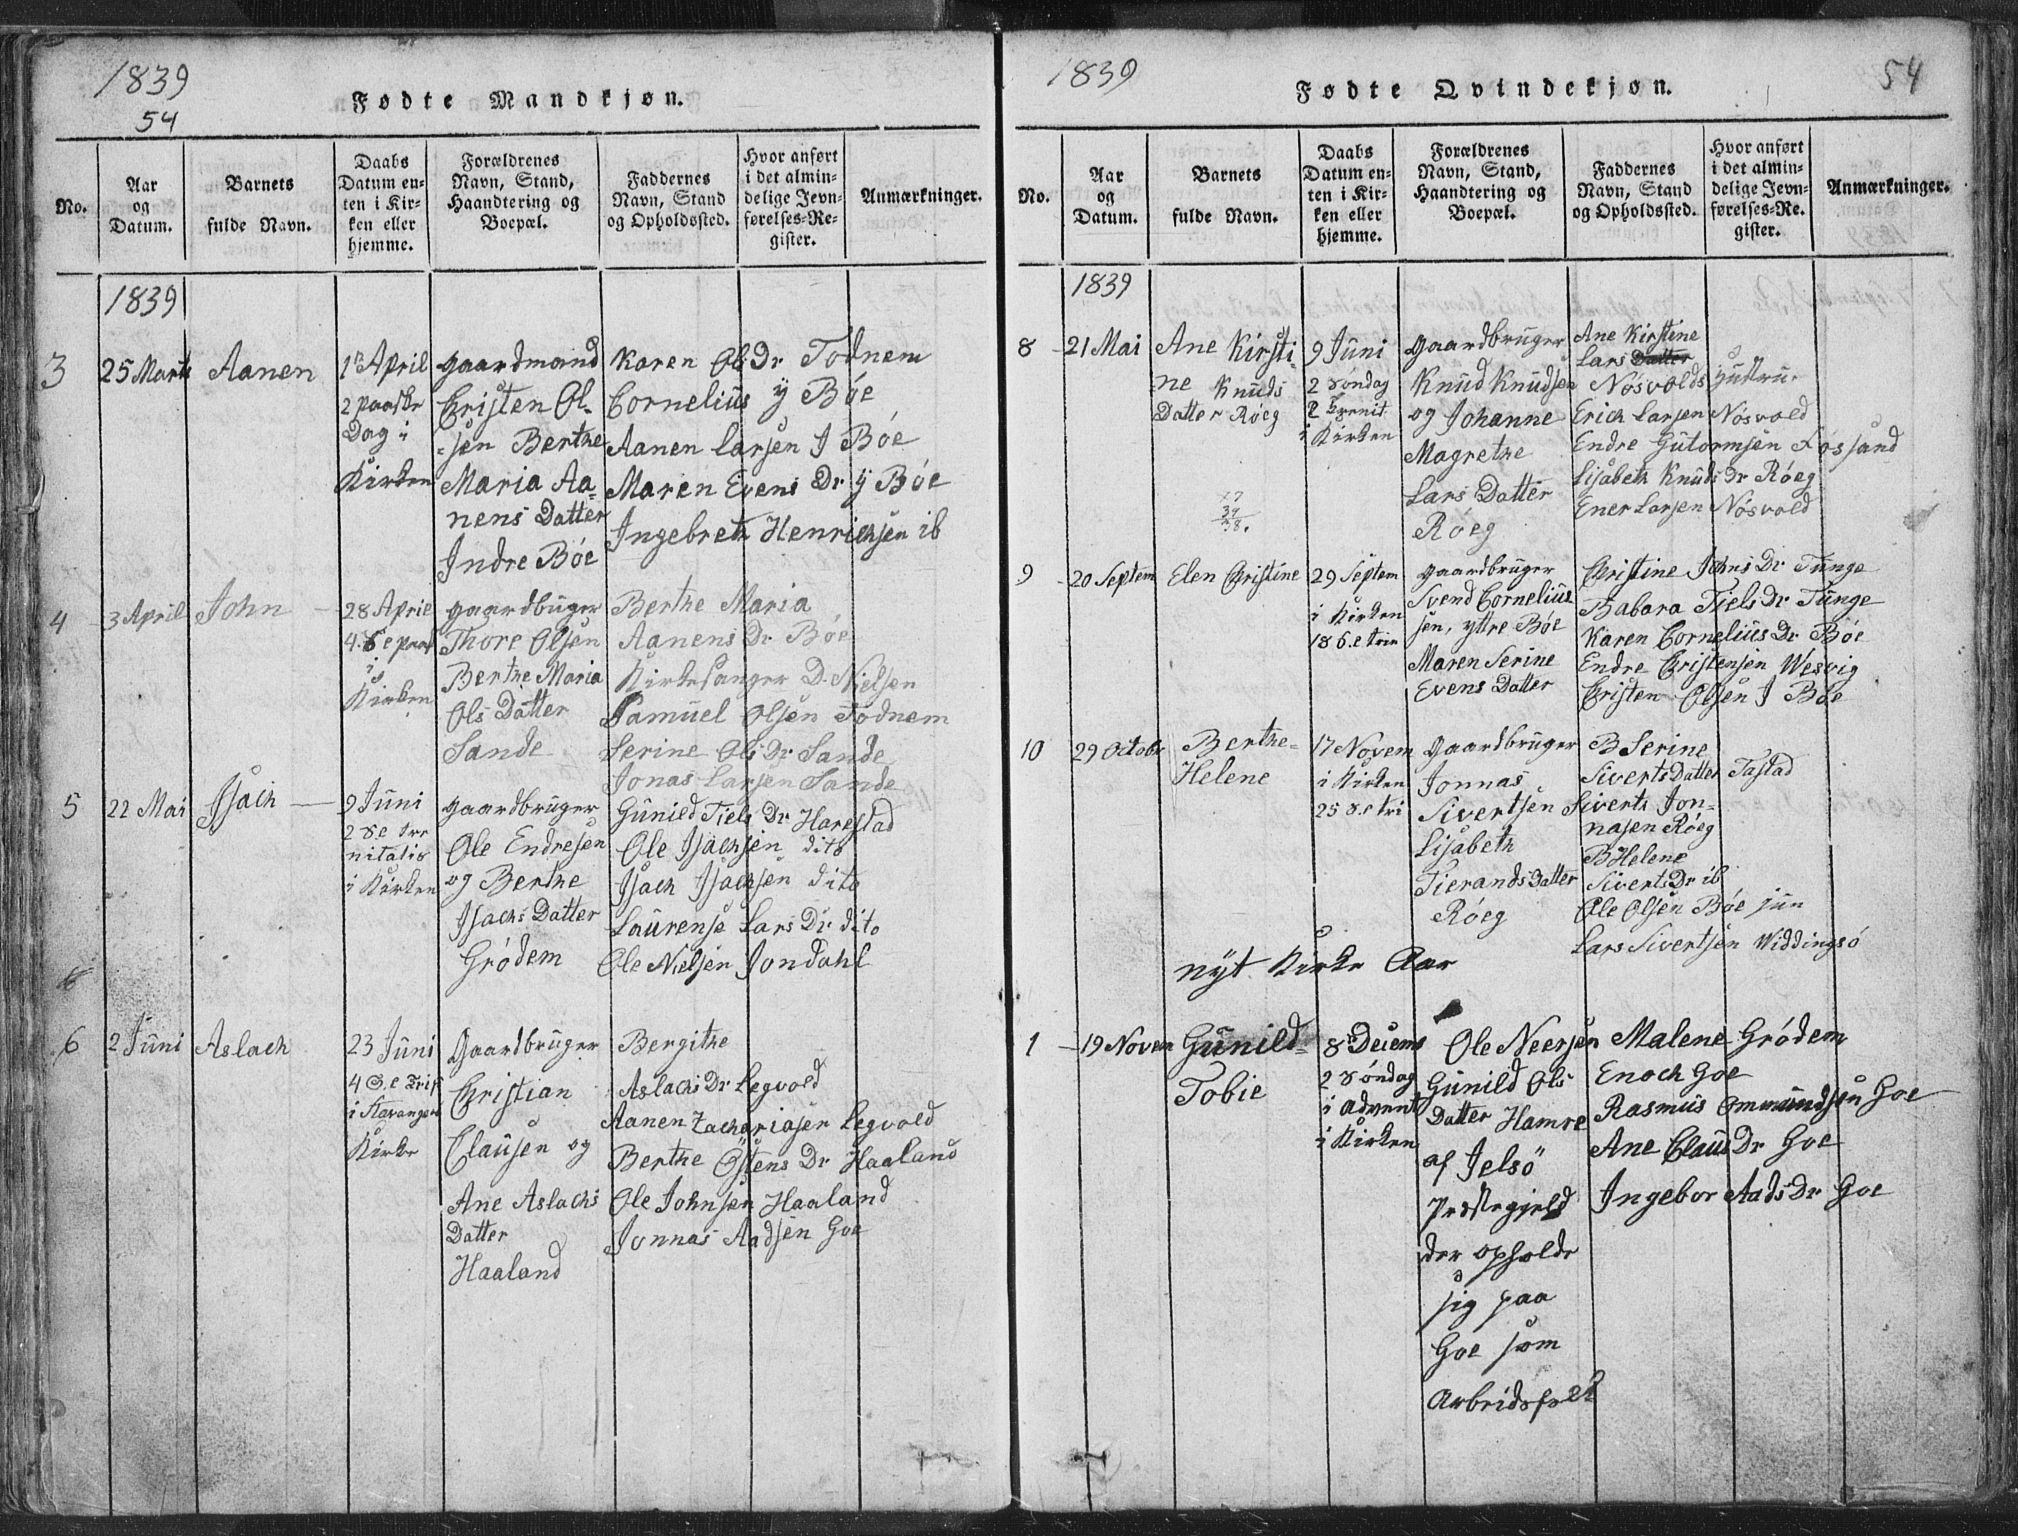 1839
54
Fødte Mandkjøn.
No.
Aar
og
Datum.
Barnets
fulde Navn.
Daabs
Datum en-
ten i Kir-
ken eller
hjemme.
Forældrenes
Navn, Stand,
Haandtering og
Boepæl.
Faddernes
Navn, Stand
og Opholdssted.
Hvor anført
i det almin-
delige Jevn-
førelses-Re-
gister.
Anmærkninger.
1839
3
25 Marts
Aanen
1ste April
2 Paaske
Dag i
Kirken
gaardmand
Christen Ol-
-sen Berthe
Maria Aa-
nens Datter
Indre Bóe
Karen Ols Dr Todnem
Cornelius y Bóe
Aanen Larsen I Bóe
Maren Evens Dr y Bóe
Ingebreth Henrichsen ib
4
3 April
John
28 April
4. S e paas
i
Kirken
gaardbruger
Thore Olsen
Berthe Maria
Ols Datter
Sande
Berthe Maria
Aanens Dr Bóe
Kirkesanger D. Nielsen
Samuel Olsen Todnem
Serine Ols Dr Sande
Jonas Larsen Sande
5
22 Mai
Isach
9 Juni
2 S.e tre
nitatis
i Kirken
gaardbruger
Ole Endresen
og Berthe
Isachs Datter
Gródem
Gunild Tiels Dr Harestad
Ole Isachsen dito
Isach Isachsen dito
Laurense Lars Dr dito
Ole Nielsen Jondahl
6
2 Juni
Aslach
23 Juni
4 S.e Trif
i Stavanger
Kirke
Gaardbruger
Christian
Clausen og
Ane Aslachs
Datter
Haaland
Bergithe
Aslachs Dr Legvold
Aanen Zachariasen Legvold
Berthe Östens Dr Haaland
Ole Johnsen Haaland
Jonnas Aadsen Goe
1839
54
Fødte Qvindekjøn.
No.
Aar
og
Datum.
Barnets
fulde Navn.
Daabs
Datum en-
ten i Kir-
ken eller
hjemme.
Forældrenes
Navn, Stand,
Haandtering og
Boepæl.
Faddernes
Navn, Stand
og Opholdssted.
Hvor anført
i det almin-
delige Jevn-
førelses-Re-
gister.
Anmærkninger.
1839
8
21 Mai
Ane Kirsti-
ne Knuds
Datter Róeg
9 Juni
2 Söndag
Trenit
i Kirken
gaardbruger
Knud Knudsen
og Johanne
Magrethe
Lars Datter
Róeg
Ane Kirstine
Lars Datter
Nósvolds Hustru.
Erich Larsen Nósvold
Endre Gutormsen Fossand
Lisabeth Knuds Dr Róeg
Ener Larsen Nósvold
9
20 Septem
Elen Christine
29 Septem
i Kirken
18 S.e trin
gaardbruger
Svend Cornelius
sen, yttre Bóe
Maren Serine
Evens Datter
Christine Johns Dr Tunge
Babara Tiels Dr Tunge
Karen Cornelius Dr Bóe
Endre Christensen Wesvig
Christen Olsen I Bóe
10
29 Octobr
Berthe-
Helene
17 Novem
i Kirken
25 S.e tri
gaardbruger
Jonnas
Sivertsen
Lisabeth
Tierands Datter
Róeg
B Serine
Siverts Datter Tastad
Siverts Jon-
nasen Róeg
B Helene
Siverts Dr ib
Ole Olsen Bóe jun
Lars Sivertsen Widdingsó
nyt Kirke Aar
1
19 Novem
Gunild-
Tobie
8 Decem
2 Söndag
i Advent
i Kirken
Ole Neersen
Gunild Ols
Datter Hamre
af Jelsö
Præstegjeld
der opholde
sig paa
Goe som
Arbeidsfolk
Malene Gródem
Enoch Goe
Rasmus Ommundsen Goe
Ane Claus Dr Goe
Ingebor Aads Dr Goe